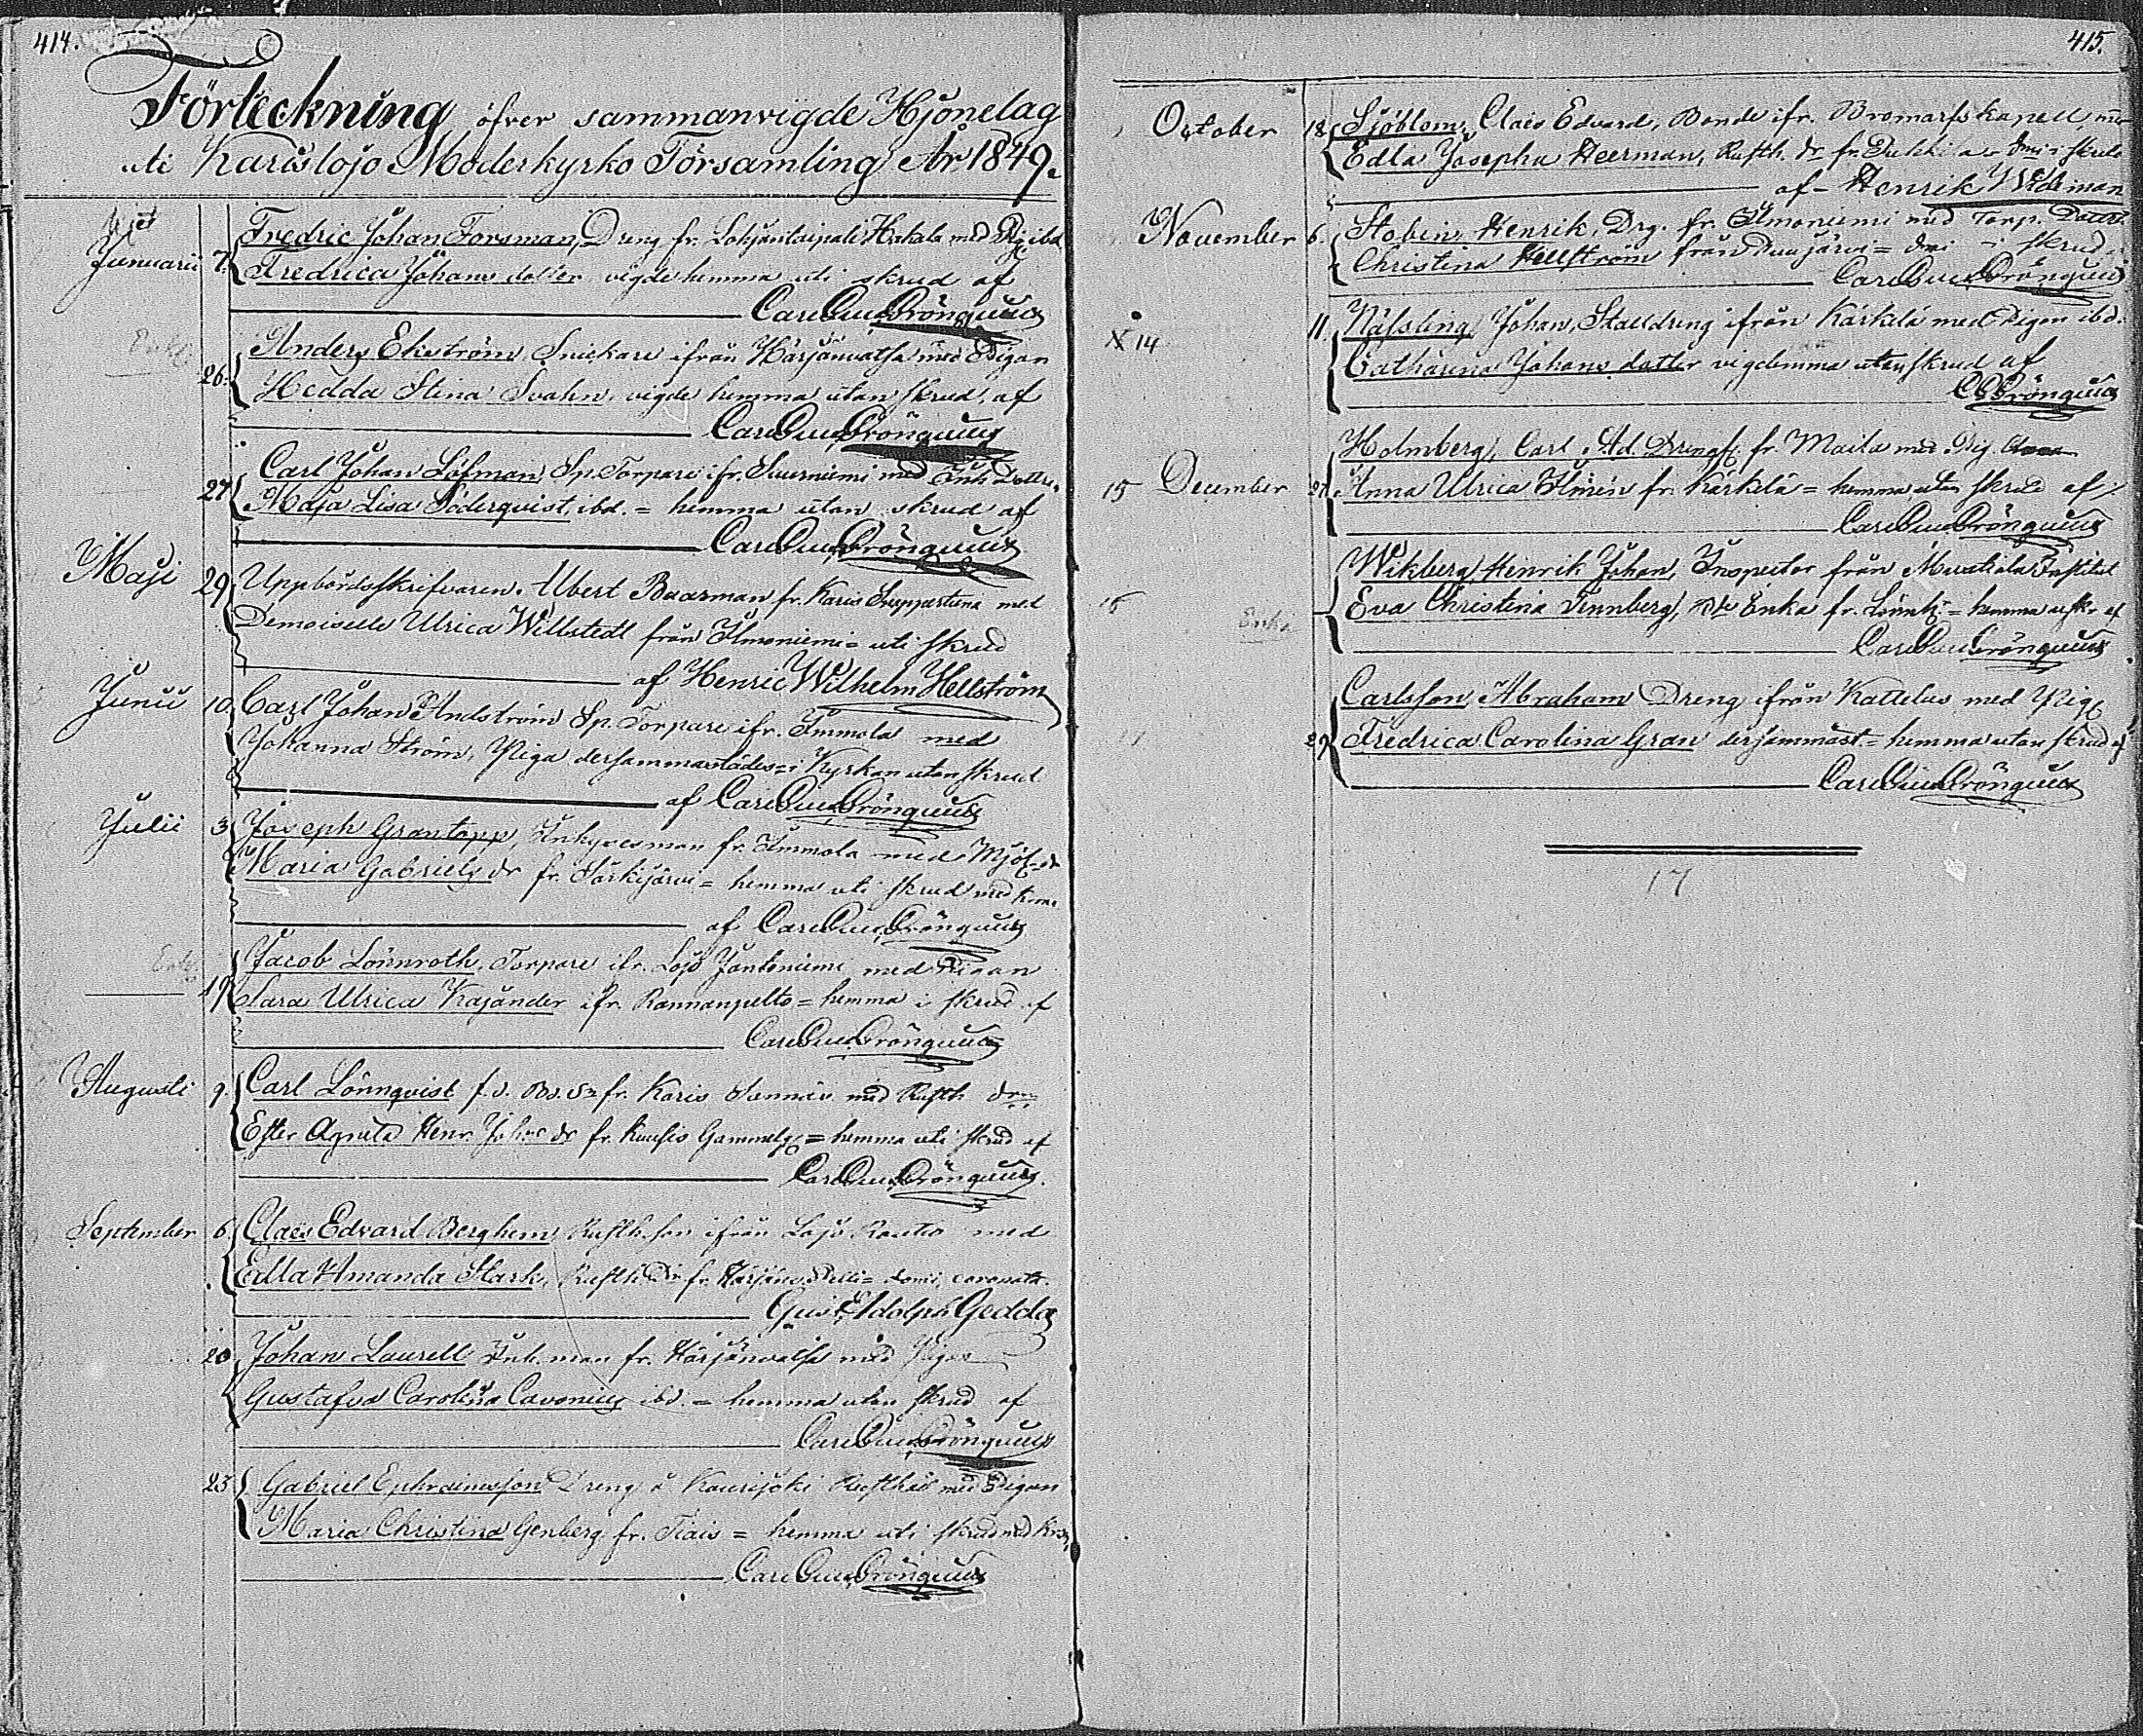 414.
Förteckning öfver sammanvigde Hjonelag
uti Karislojo Moderkyrko Församling År 1849.
Januarii 7. Fredric Johan Forsman, Dreng fr. Lohjantaipale Hakala med Pig. ibd.
Fredrica Johans dotter vigde hemma uti skrud af
Carl Gust. Grönqvist
26. Anders Ekström, Snickare ifrån Härjänvatsa med Pigan
Hedda Stina Svahn vigde hemma utan skrud, af
Carl Gust. Grönqvist
27 Carl Johan Löfman, Sp. Torpare ifr. Suurniemi med Inh. Dottr.
Maja Lisa Söderqvist ibd. = hemma utan skrud af
Carl Gust. Grönqvist
Maji 29 Uppbördsskrifvaren Albert Baarman fr. Karis med
Demoiselle Ulrica Willstedt från Ilmoniemi = uti skrud
af Henric Wilhelm Hellström
Junii 10. Carl Johan Andström Sp. Torpare ifr. Immola med
Johanna Ström, Piga dersammastädes = i Kyrkan utan skrud
af Carl Gust. Grönqvist
Julii 3 Joseph Grantopp, Inhysesman fr. Immola med
Maria Gabriels dr fr. Särkijärvi = hemma uti skrud med
af Carl Gust. Grönqvist
Enkl.
19 Jacob Lönnroth, Torpare ifr. Lojo Jantoniemi med Pigan
Sara Ulrica Kajander ifr. Rannanpelto = hemma i skrud af
Carl Gust. Grönqvist
Augusti 9. Carl Lönnqvist fr. Karis med Rusth. dr
Ester Agneta Henr. Johns dr fr. Gammelg. = hemma uti skrud af
Carl Gust. Grönqvist
September 6 Claes Edvard Berghem Rusth. son ifrån Lojo med
Edla Amanda Stark, Rusth. Dr fr. = domi, coronata.
Gust. Adolph Gedda
20 Johan Laurell Inh. man fr. Härjänvatsa med Pigan
Gustafva Carolina Cavonius ibd. = hemma utan skrud af
Carl Gust. Grönqvist
23 Gabriel Ephraimsson Dreng å Kourjoki Rusthåll med Pigan
Maria Christina Genberg fr. Tiais = hemma uti skrud med
Carl Gust. Grönqvist
415.
October 18 Sjöblom, Claës Edvard, Bonde ifr. Bromarfs Kapell,
Edla Josepha Heerman, Rusth. dr fr. i skrud
af - Henrik Wideman
November 6. Stobin, Henrik, Drg. fr. Ilmoniemi med Torp. Dottr.
Christina Hellström från = i skrud
Carl Gust. Grönqvist
X 14 11. Näfsling, Johan, Stalldreng ifrån Kärkelä med Pigan ibd.
Catharina Johans dotter vigde hemma utan skrud af
CGGrönqvist
15 December 27 Holmberg, Carl Ad. Dreng fr. Maila med Pig.
Anna Ulrica Ilmén fr. Kärkelä = hemma utan skrud af
Carl Gust. Grönqvist
16 Enka Wikberg, Henrik Johan, Inspector från Mustiala Institut
Eva Christina Tennberg, Enka fr. = hemma af
Carl Gust. Grönqvist
29 Carlsson, Abraham Dreng ifrån Kattelus med Pig.
Fredrica Carolina Gran dersammast. = hemma utan skrud af
Carl Gust. Grönqvist
17